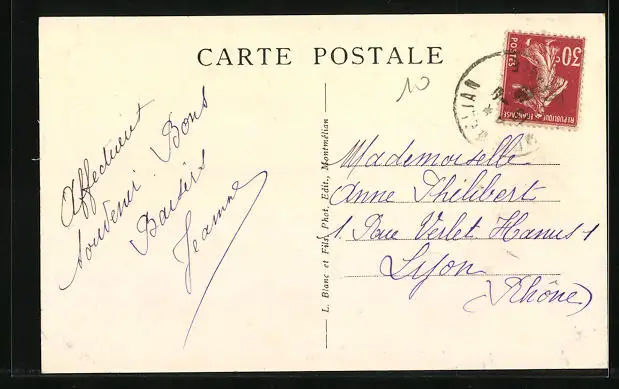 CARTE POSTALE
10
POSTES
30c
REPUBLIQUE FRANÇAISE
Affectueux
souvenir Bons
Baisers
Jeanne
L. Blanc et Fils, Phot. Edit., Montmélian
Mademoiselle
Anne Philibert
1. Rue Verlet Hanus 1
Lyon
(Rhône)